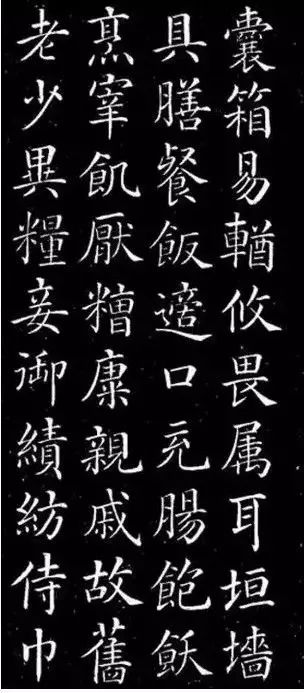 囊箱易輶攸畏属耳垣墻
具膳餐飯適口充腸飽飫
烹宰飢厭糟康親戚故舊
老少異糧妾御績紡侍巾